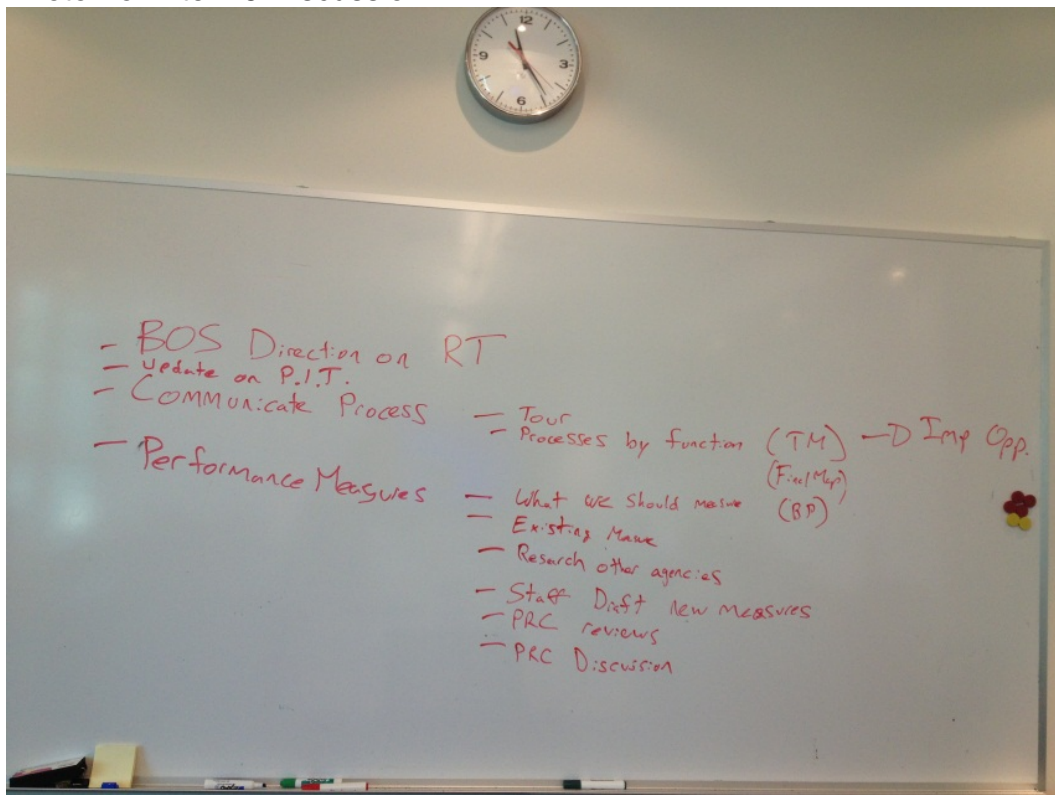 12
3
6
9
- BOS Direction on RT
- Update on P.I.T.
- Communicate Process
- Tour
- Processes by function (TM) → Imp Opp.
(Final Map)
(BP)
- Performance Measures
- What we should measure
- Existing
- Research other agencies
- Staff Draft new measures
- PRC reviews
- PRC Discussion